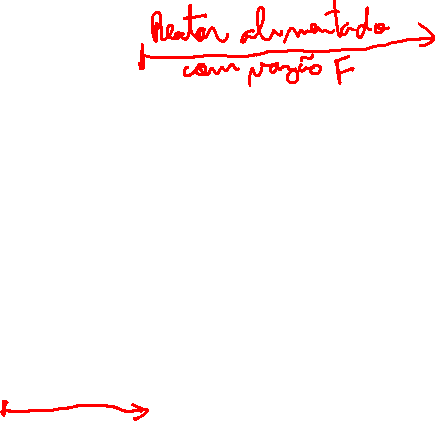 Reator alimentado
com vazão F